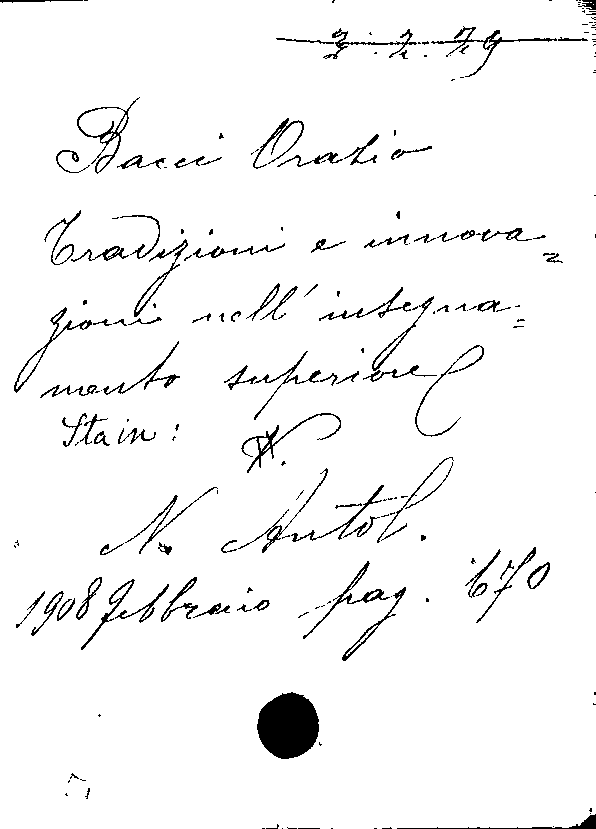 3. 2. 79
Bacci Orazio
Tradizioni e innova=
zioni nell' insegna=
mento superiore
Sta in:
N. Antol.
1908 febbraio pag. 670